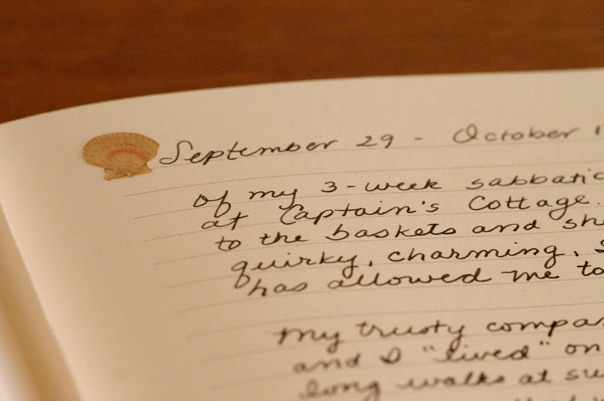 September 29 - October 1
of my 3-week sabbatic
at Captain's Cottage.
to the baskets and sh
quirky, charming, s
has allowed me to
My trusty compa
and I "lived" on
long walks at su